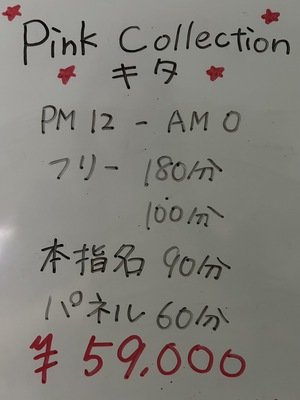 Pink Collection
キタ
PM 12 - AM 0
フリー 180分
100分
本指名 90分
パネル 60分
¥ 59.000